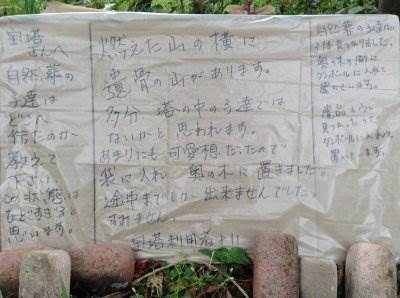 氣塔
さんへ
自然葬の
子達は
どこへ
行ったのか
教えて
下さい
この状態は
ひどすぎると
思います。
燃えた山の横に
遺骨の山があります。
多分 塔の中の子達では
ないかと思われます。
あまりにも可愛想だったので
袋に入れ 奥の木に置きました。
途中までしか 出来ませんでした。
すみません。
氣塔利用者より
自然葬の子達が
見つかりました。
奥の木の間に
ダンボールに入れて
置いています。
遺品も
見つかったので
ダンボールに入れて
置いています。